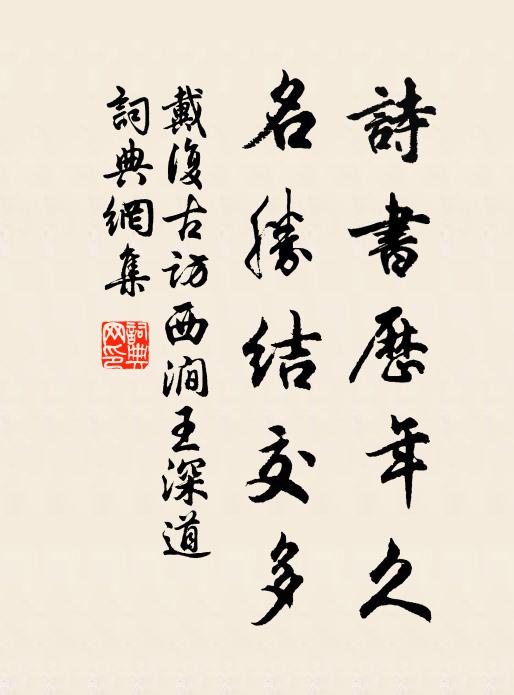 詩書歷年久
名勝結交多
戴復古訪西澗王深道
詞典網集
詞典網印